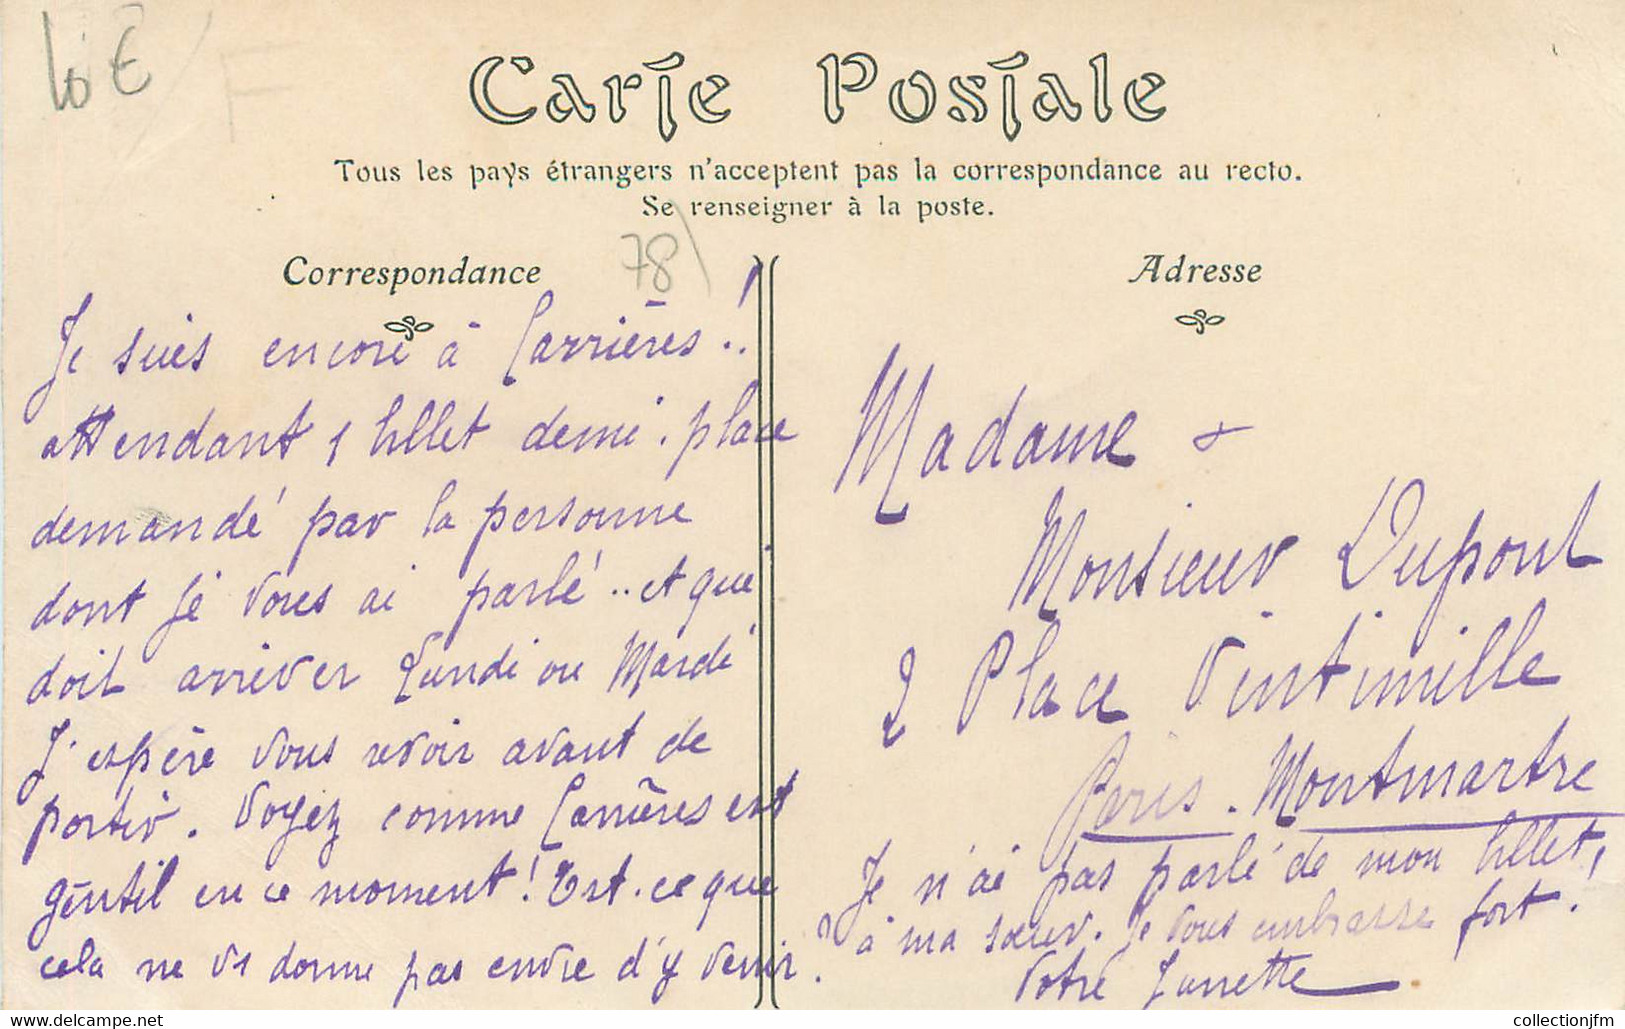 10 €
F
Carte Postale
Tous les pays étrangers n'acceptent pas la correspondance au recto.
Se renseigner à la poste.
78
Correspondance
Je suis encore à Carrières..!
attendant 1 billet demi-place
demandé par la personne
dont je vous ai parlé.. et qui
doit arriver Lundi ou Mardi
J'espère vous revoir avant de
partir. Voyez comme Carrières est
gentil en ce moment! Est-ce que
cela ne vs donne pas envie d'y venir?
Adresse
Madame &
Monsieur Dupont
2 Place Vintimille
Paris. Montmartre
Je n'ai pas parlé de mon billet,
à ma sœur. Je vous embrasse fort.
Votre
collectionjfm